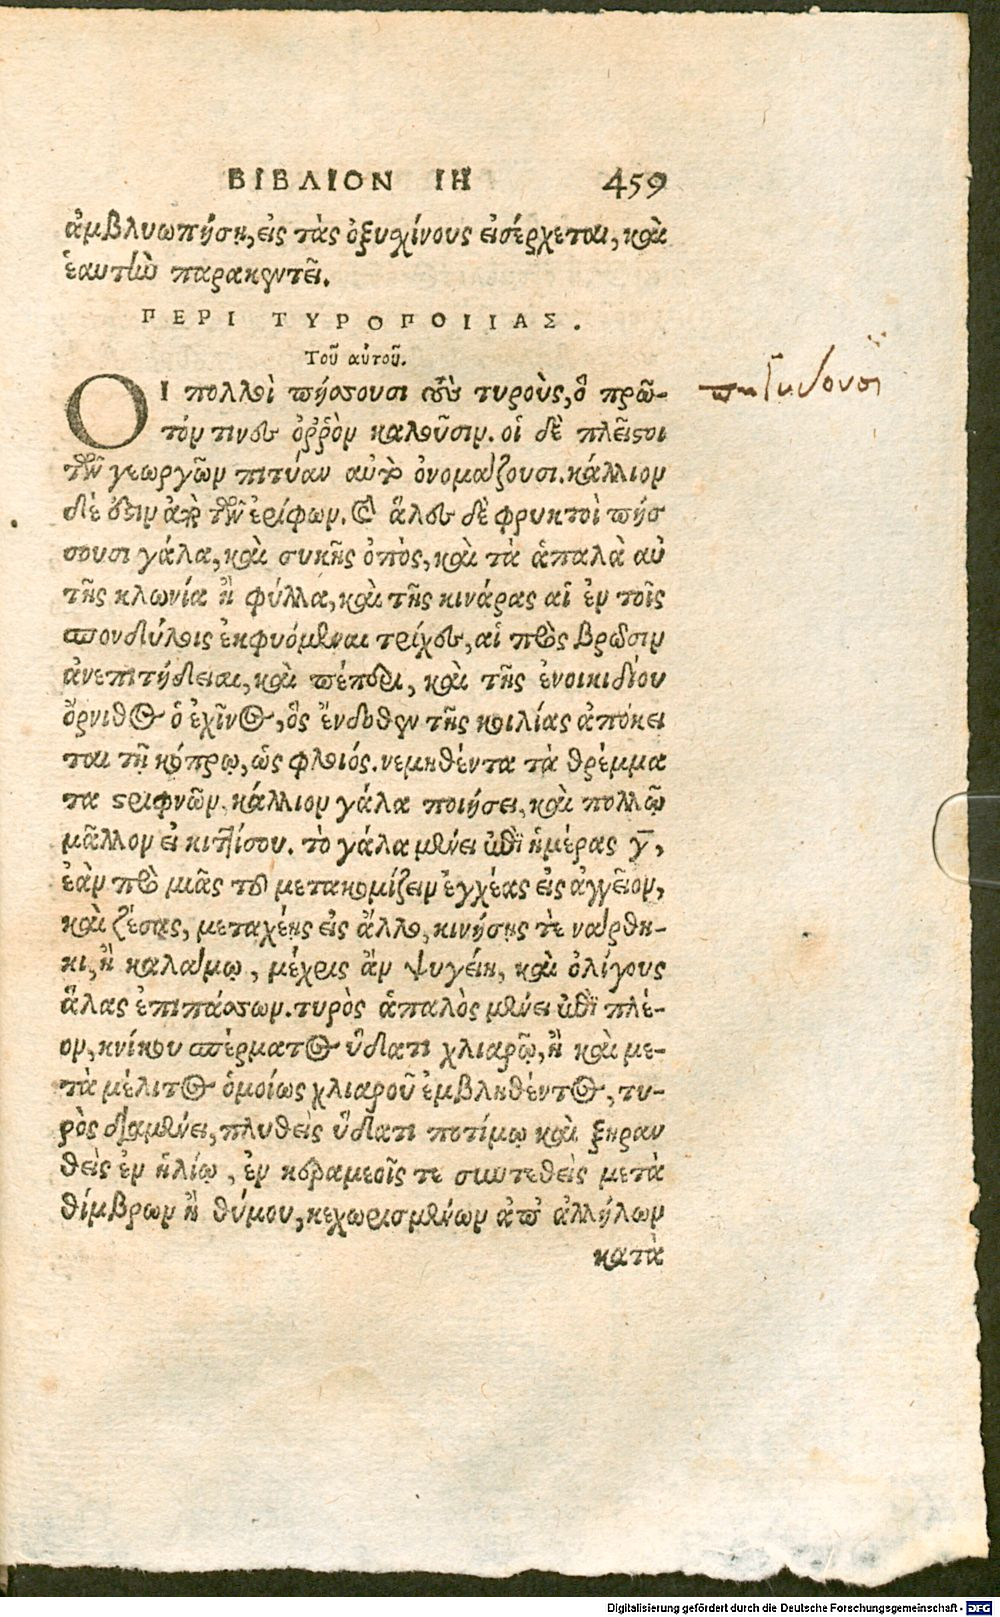 ΒΙΒΛΙΟΝ ΙΗ 459
ἀμβλυωπήσῃ, εἰς τὰς ὀξυσχίνους εἰσέρχεται, καὶ
ἑαυτὴν παρακεντεῖ.
ΠΕΡΙ ΤΥΡΟΠΟΙΙΑΣ.
Τοῦ αὐτοῦ.
ΟΙ πολλοὶ πήσσουσι τοὺς τυροὺς, ὃ πρῶ-
τόν τινες ὀῤῥὸν καλοῦσιν. οἱ δὲ πλεῖστοι
τῶν γεωργῶν πιτύαν αὐτὸ ὀνομάζουσι. κάλλιον
δέ ἐστιν ἀπὸ τῶν ἐρίφων. καὶ ἅλες δὲ φρυκτοὶ πήσ
σουσι γάλα, καὶ συκῆς ὀπὸς, καὶ τὰ ἁπαλὰ αὐ
τῆς κλωνία ἢ φύλλα, καὶ τῆς κινάρας αἱ ἐν τοῖς
σπονδύλοις ἐκφυόμεναι τρίχες, αἱ πρὸς βρῶσιν
ἀνεπιτήδειαι, καὶ πέπερι, καὶ τῆς ἐνοικιδίου
ὄρνιθος ὁ ἐχῖνος, ὃς ἔνδοθεν τῆς κοιλίας ἀπόκει
ται τῇ κόπρῳ, ὡς φλοιός. νεμηθέντα τὰ θρέμμα
τα στριφνῶν, κάλλιον γάλα ποιήσει, καὶ πολλῷ
μᾶλλον εἰ κυτίσου. τὸ γάλα μένει ἐπὶ ἡμέρας γ̄,
ἐὰν πρὸ μιᾶς τοῦ μετακομίζειν ἐγχέας εἰς ἀγγεῖον,
καὶ ζέσας, μεταχέῃς εἰς ἄλλο, κινήσῃς τε νάρθη-
κι, ἢ καλάμῳ, μέχρις ἂν ψυγείη, καὶ ὀλίγους
ἅλας ἐπιπάσσων. τυρὸς ἁπαλὸς μένει ἐπὶ πλέ-
ον, κνίκου σπέρματος ὕδατι χλιαρῷ, ἢ καὶ με-
τὰ μέλιτος ὁμοίως χλιαροῦ ἐμβληθέντος, τυ-
ρὸς διαμένει, πλυθεὶς ὕδατι ποτίμῳ καὶ ξηραν
θεὶς ἐν ἡλίῳ, ἐν κεραμεοῖς τε συντεθεὶς μετὰ
θίμβρων ἢ θύμου, κεχωρισμένων ἀπ' ἀλλήλων
κατὰ